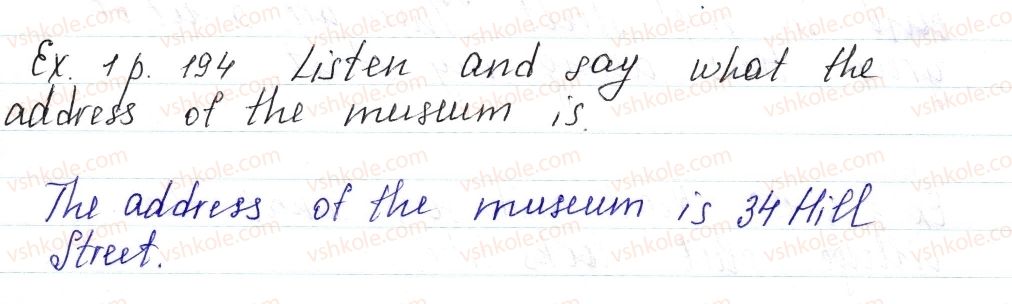 Ex. 1 p. 194 Listen and say what the
address of the museum is.
The address of the museum is 34 Hill
Street.